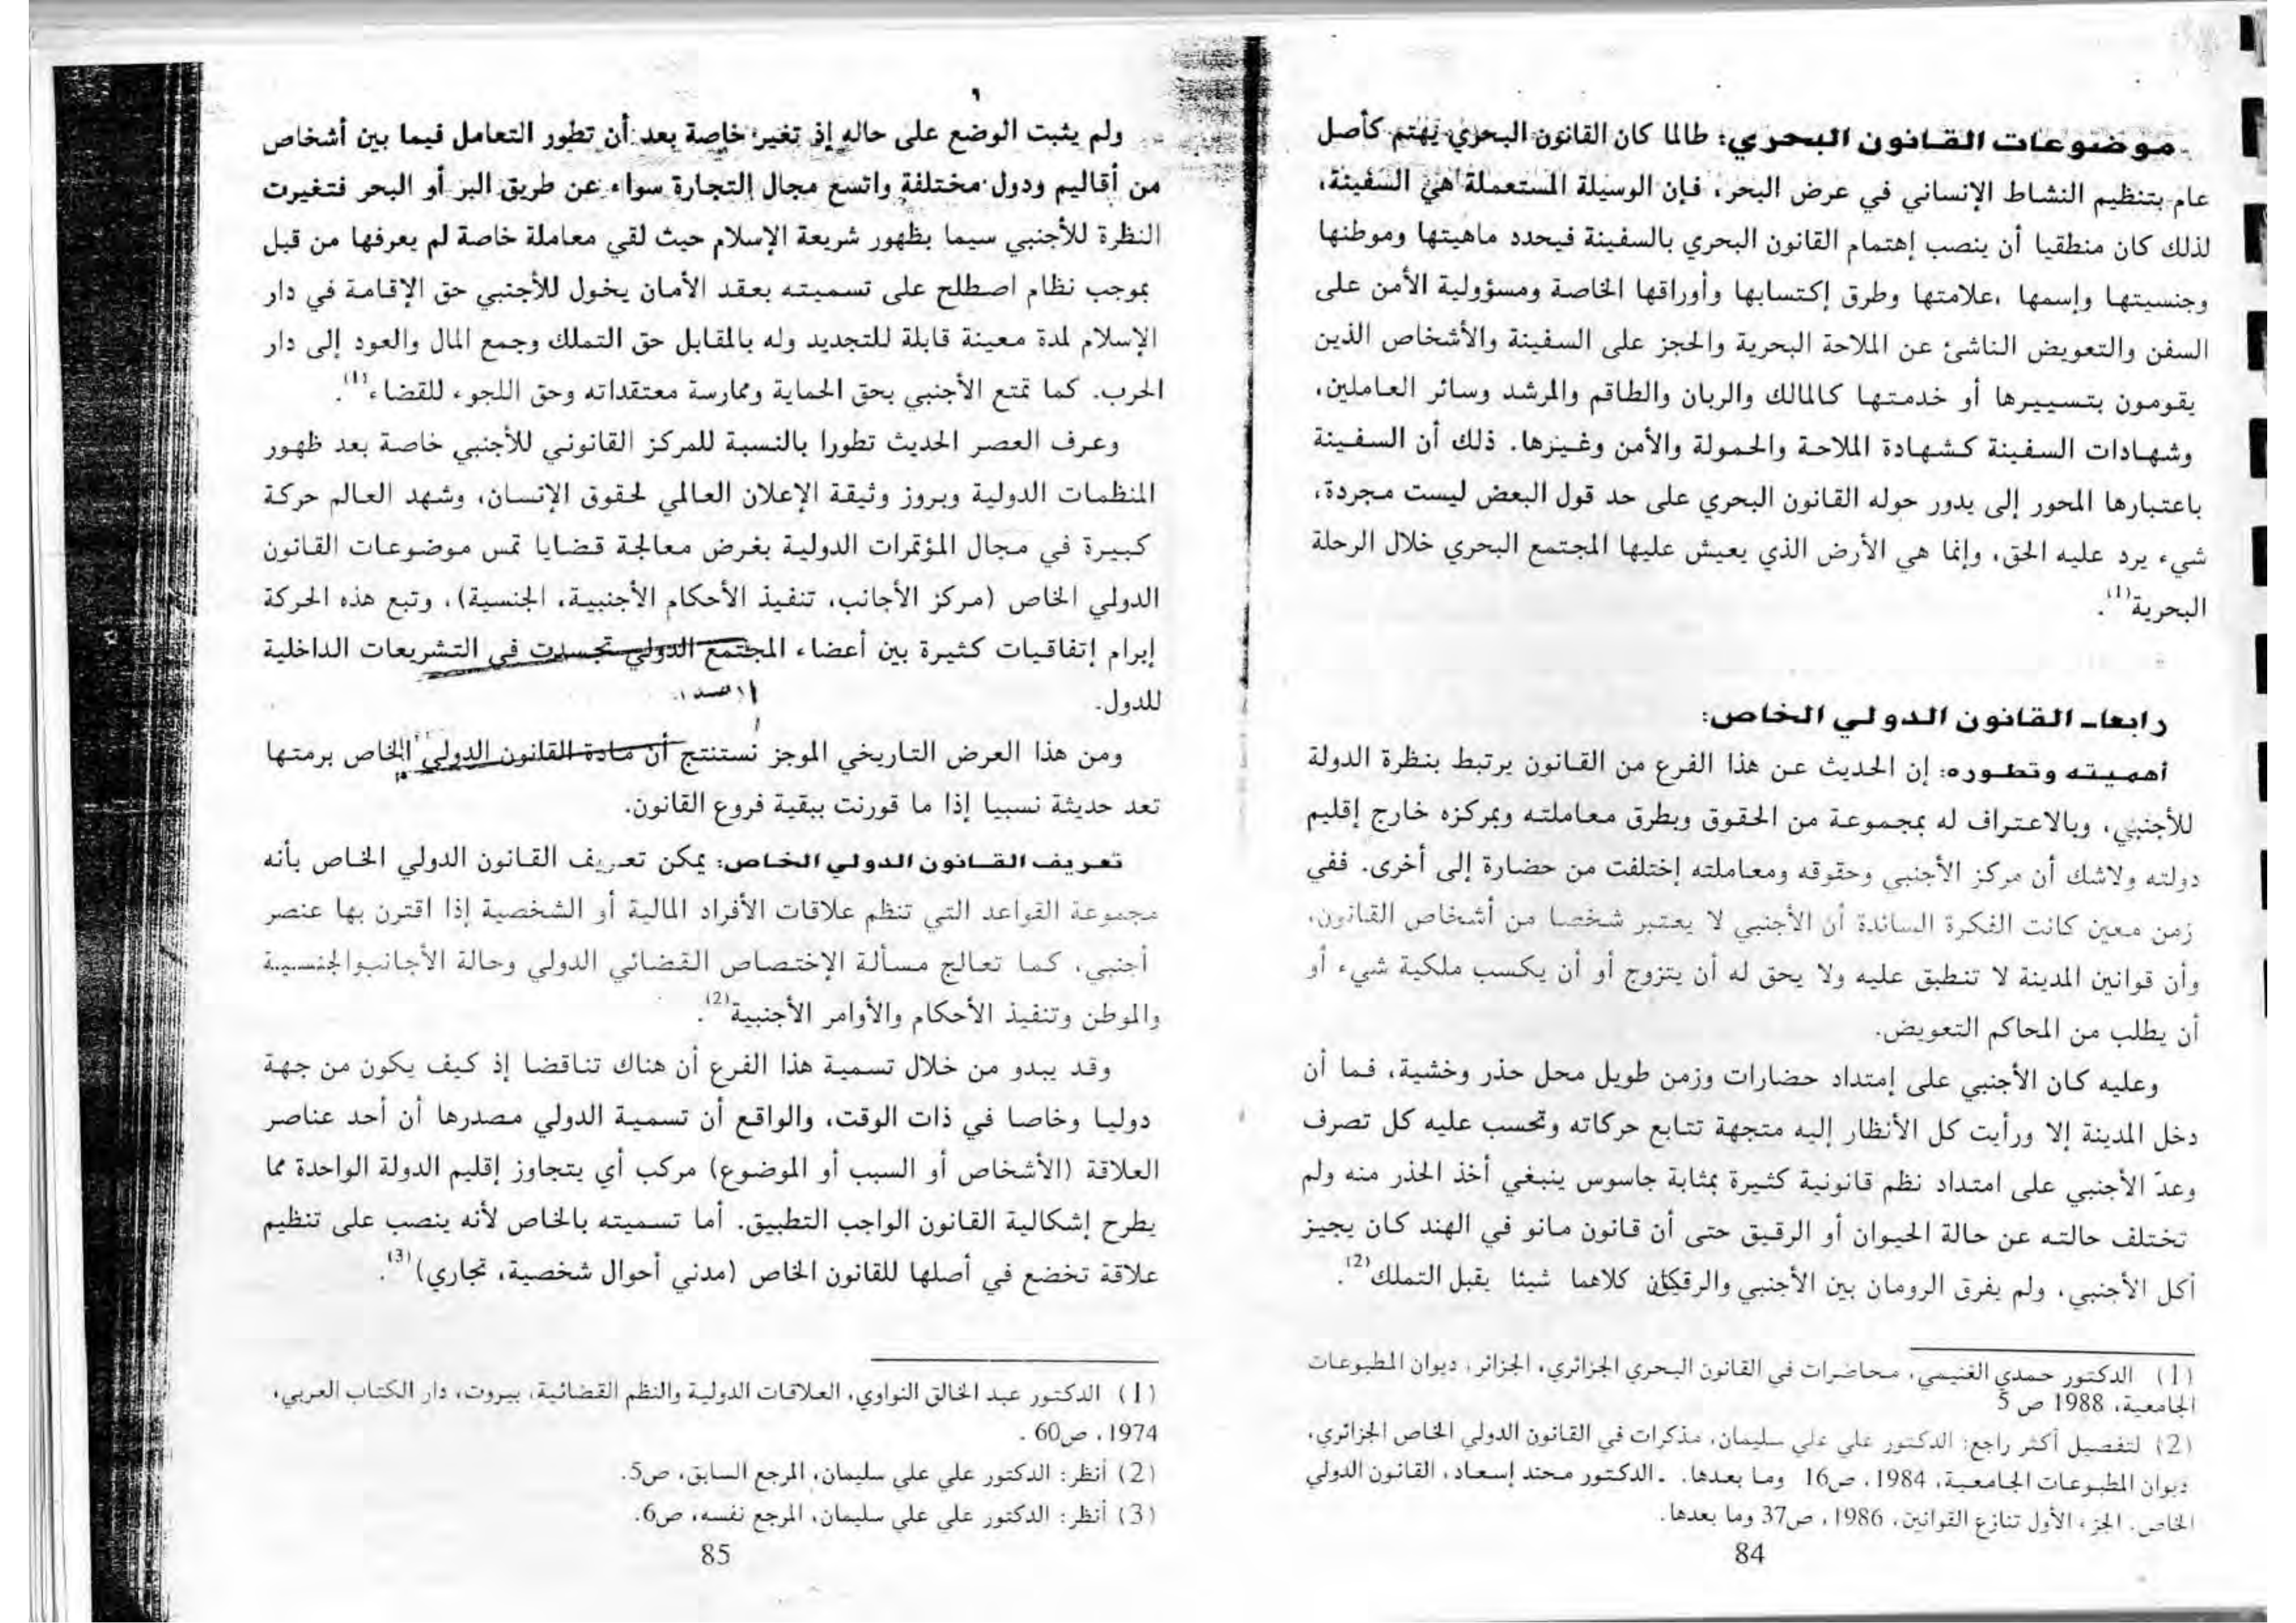 ـ موضوعات القانون البحري: طالما كان القانون البحري يهتم كأصل
عام بتنظيم النشاط الإنساني في عرض البحر، فإن الوسيلة المستعملة هي السفينة،
لذلك كان منطقيا أن ينصب إهتمام القانون البحري بالسفينة فيحدد ماهيتها وموطنها
وجنسيتها وإسمها ،علامتها وطرق إكتسابها وأوراقها الخاصة ومسؤولية الأمن على
السفن والتعويض الناشئ عن الملاحة البحرية والحجز على السفينة والأشخاص الذين
يقومون بتسييرها أو خدمتها كالمالك والربان والطاقم والمرشد وسائر العاملين،
وشهادات السفينة كشهادة الملاحة والحمولة والأمن وغيرها. ذلك أن السفينة
باعتبارها المحور إلى يدور حوله القانون البحري على حد قول البعض ليست مجردة،
شيء يرد عليه الحق، وإنما هي الأرض الذي يعيش عليها المجتمع البحري خلال الرحلة
البحرية(1).
رابعاـ القانون الدولي الخاص:
أهميته وتطوره: إن الحديث عن هذا الفرع من القانون يرتبط بنظرة الدولة
للأجنبي، وبالاعتراف له بمجموعة من الحقوق وبطرق معاملته وبمركزه خارج إقليم
دولته ولاشك أن مركز الأجنبي وحقوقه ومعاملته إختلفت من حضارة إلى أخرى. ففي
زمن معين كانت الفكرة السائدة أن الأجنبي لا يعتبر شخصا من أشخاص القانون،
وأن قوانين المدينة لا تنطبق عليه ولا يحق له أن يتزوج أو أن يكسب ملكية شيء أو
أن يطلب من المحاكم التعويض.
وعليه كان الأجنبي على إمتداد حضارات وزمن طويل محل حذر وخشية، فما أن
دخل المدينة إلا ورأيت كل الأنظار إليه متجهة تتابع حركاته وتحسب عليه كل تصرف
وعدّ الأجنبي على امتداد نظم قانونية كثيرة بمثابة جاسوس ينبغي أخذ الحذر منه ولم
تختلف حالته عن حالة الحيوان أو الرقيق حتى أن قانون مانو في الهند كان يجيز
أكل الأجنبي، ولم يفرق الرومان بين الأجنبي كلاهما شيئا يقبل التملك(2).
(1) الدكتور حمدي الغنيمي، محاضرات في القانون البحري الجزائري، الجزائر، ديوان المطبوعات
الجامعية، 1988 ص 5
(2) لتفصيل أكثر راجع: الدكتور علي علي سليمان، مذكرات في القانون الدولي الخاص الجزائري،
ديوان المطبوعات الجامعية، 1984، ص16 وما بعدها. ـ الدكتور محند إسعاد، القانون الدولي
الخاص. الجزء الأول تنازع القوانين، 1986، ص37 وما بعدها.
84
ولم يثبت الوضع على حاله إذ تغير خاصة بعد أن تطور التعامل فيما بين أشخاص
من أقاليم ودول مختلفة واتسع مجال التجارة سواء عن طريق البر أو البحر فتغيرت
النظرة للأجنبي سيما بظهور شريعة الإسلام حيث لقي معاملة خاصة لم يعرفها من قبل
بموجب نظام اصطلح على تسميته بعقد الأمان يخول للأجنبي حق الإقامة في دار
الإسلام لمدة معينة قابلة للتجديد وله بالمقابل حق التملك وجمع المال والعود إلى دار
الحرب. كما تمتع الأجنبي بحق الحماية وممارسة معتقداته وحق اللجوء للقضاء(1).
وعرف العصر الحديث تطورا بالنسبة للمركز القانوني للأجنبي خاصة بعد ظهور
المنظمات الدولية وبروز وثيقة الإعلان العالمي لحقوق الإنسان، وشهد العالم حركة
كبيرة في مجال المؤتمرات الدولية بغرض معالجة قضايا تمس موضوعات القانون
الدولي الخاص (مركز الأجانب، تنفيذ الأحكام الأجنبية، الجنسية)، وتبع هذه الحركة
إبرام إتفاقيات كثيرة بين أعضاء المجتمع الدولي تجسدت في التشريعات الداخلية
للدول.
ومن هذا العرض التاريخي الموجز نستنتج أن مادة القانون الدولي الخاص برمتها
تعد حديثة نسبيا إذا ما قورنت ببقية فروع القانون.
تعريف القانون الدولي الخاص: يمكن تعريف القانون الدولي الخاص بأنه
مجموعة القواعد التي تنظم علاقات الأفراد المالية أو الشخصية إذا اقترن بها عنصر
أجنبي، كما تعالج مسألة الإختصاص القضائي الدولي وحالة الأجانب والجنسية
والموطن وتنفيذ الأحكام والأوامر الأجنبية(2).
وقد يبدو من خلال تسمية هذا الفرع أن هناك تناقضا إذ كيف يكون من جهة
دوليا وخاصا في ذات الوقت، والواقع أن تسمية الدولي مصدرها أن أحد عناصر
العلاقة (الأشخاص أو السبب أو الموضوع) مركب أي يتجاوز إقليم الدولة الواحدة مما
يطرح إشكالية القانون الواجب التطبيق. أما تسميته بالخاص لأنه ينصب على تنظيم
علاقة تخضع في أصلها للقانون الخاص (مدني أحوال شخصية، تجاري)(3).
(1) الدكتور عبد الخالق النواوي، العلاقات الدولية والنظم القضائية، بيروت، دار الكتاب العربي،
1974، ص60 .
(2) أنظر: الدكتور علي علي سليمان، المرجع السابق، ص5.
(3) أنظر: الدكتور علي علي سليمان، المرجع نفسه، ص6.
85